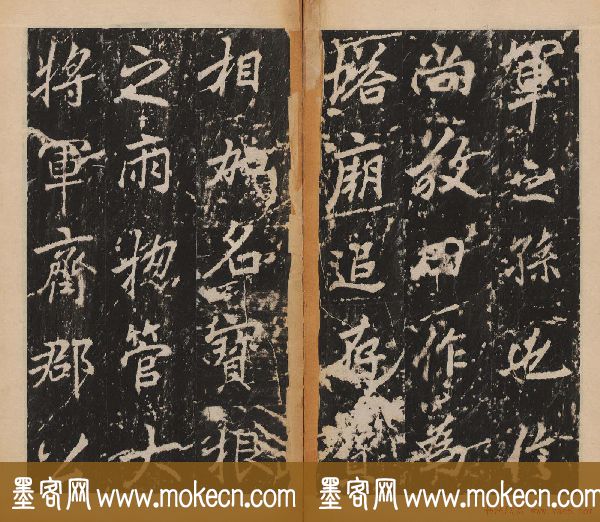 軍之孫也
尚作為
廟追存
相如名寶狼
之雨惣管大
將軍齊郡公
墨客网 www.mokecn.com 墨客网 www.mokecn.com